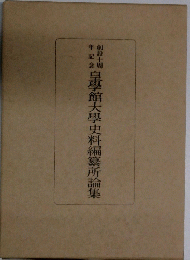 創設十周
年記念
皇學館大學史料編纂所論集